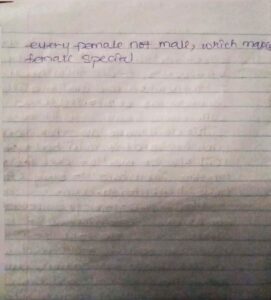 every female not male, which make
female special